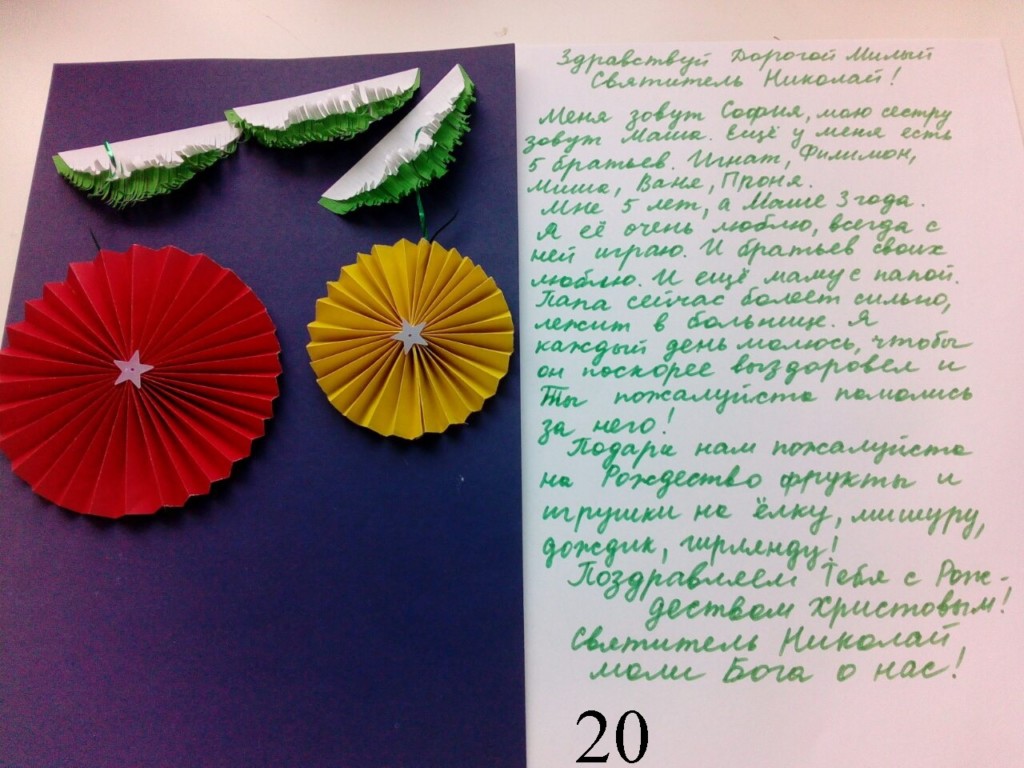 Здравствуй Дорогой Милый
Святитель Николай!
Меня зовут София, мою сестру
зовут Маша. Ещё у меня есть
5 братьев. Игнат, Филимон,
Миша, Ваня, Проня.
Мне 5 лет, а Маше 3 года.
Я её очень люблю, всегда с
ней играю. И братьев своих
люблю. И ещё маму с папой.
Папа сейчас болеет сильно,
лежит в больнице. Я
каждый день молюсь, чтобы
он поскорее выздоровел и
Ты пожалуйста помолись
за него!
Подари нам пожалуйста
на Рождество фрукты и
игрушки на ёлку, мишуру,
дождик, гирлянду!
Поздравляем Тебя с Рож-
деством Христовым!
Святитель Николай
моли Бога о нас!
20